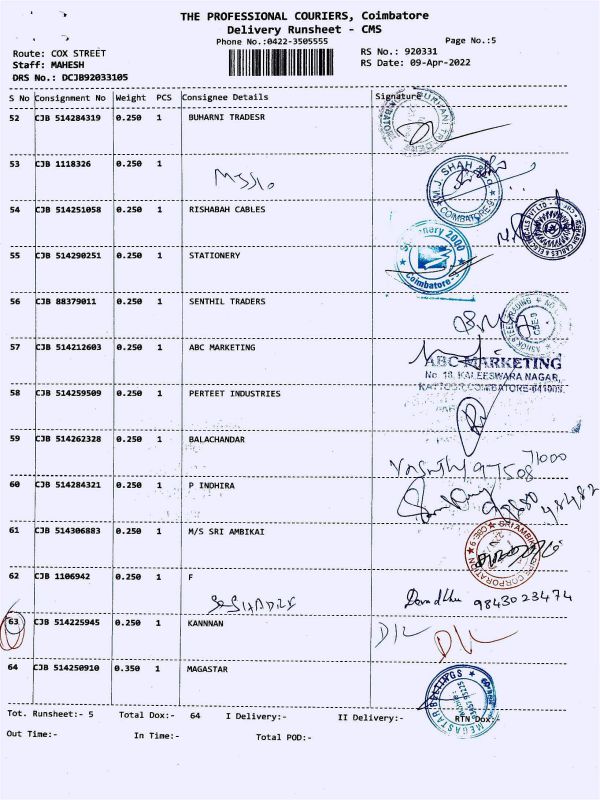 THE PROFESSIONAL COURIERS, Coimbatore
Delivery Runsheet - CMS
Phone No.:0422-3505555 Page No.:5
Route: COX STREET RS No.: 920331
Staff: MAHESH RS Date: 09-Apr-2022
DRS No.: DCJB92033105
S No Consignment No Weight PCS Consignee Details Signature
52 CJB 514284319 0.250 1 BUHARNI TRADESR
53 CJB 1118326 0.250 1
J. SHAH & CO
COIMBATORE-9
54 CJB 514251058 0.250 1 RISHABAH CABLES
55 CJB 514290251 0.250 1 STATIONERY
Stationery 2000
Coimbatore
56 CJB 88379011 0.250 1 SENTHIL TRADERS
57 CJB 514212603 0.250 1 ABC MARKETING
ABC MARKETING
No 18, KALEESWARA NAGAR,
KATTOOR, COIMBATORE-641009.
58 CJB 514259509 0.250 1 PERTEET INDUSTRIES
59 CJB 514262328 0.250 1 BALACHANDAR
60 CJB 514284321 0.250 1 P INDHIRA
61 CJB 514306883 0.250 1 M/S SRI AMBIKAI
62 CJB 1106942 0.250 1 F
9843023474
63 CJB 514225945 0.250 1 KANNNAN
D/L D/L
64 CJB 514250910 0.350 1 MAGASTAR
MEGASTAR BELTINGS
Tot. Runsheet:- 5 Total Dox:- 64 I Delivery:- II Delivery:- RTN Dox:-
Out Time:- In Time:- Total POD:-